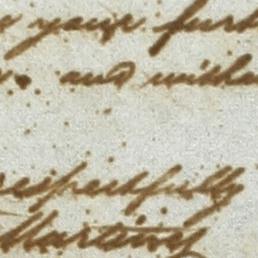 your furt
and witho
respectfully
Martinez